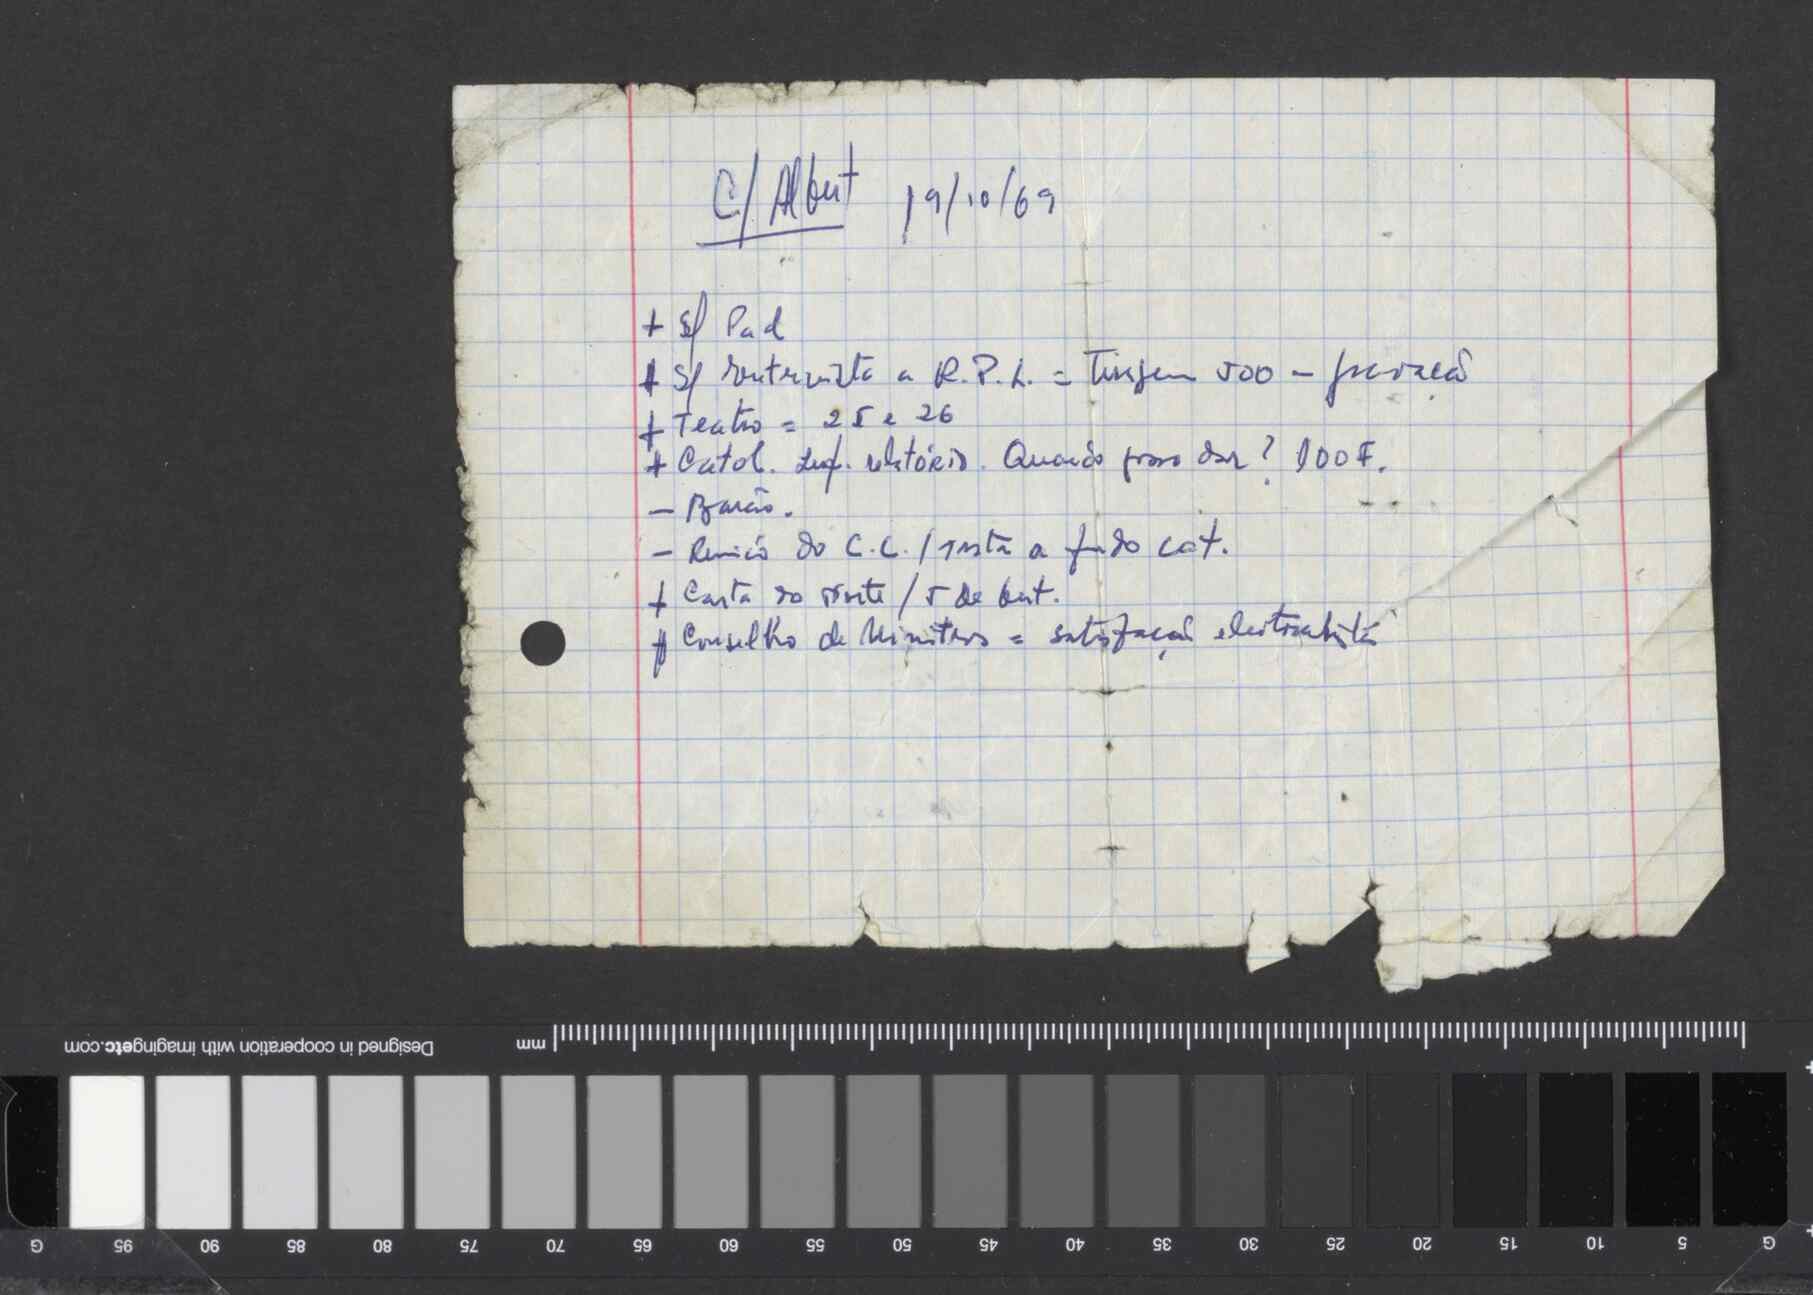 C/ Albert 19/10/69
+ S/ Pad
+ S/ entrevista a R.P.L. = Tiragem 500 - gravação
+ Teatro = 25 e 26
+ Catol. relatório. Quando posso dar? 100 F.
- Barão.
- Reunião do C.C. / a fado cat.
+ Carta do / 5 de Out.
+ Conselho de Ministros = satisfação eleitoralista
Designed in cooperation with imagingetc.com
mm
G 95 90 85 80 75 70 65 60 55 50 45 40 35 30 25 20 15 10 5 G